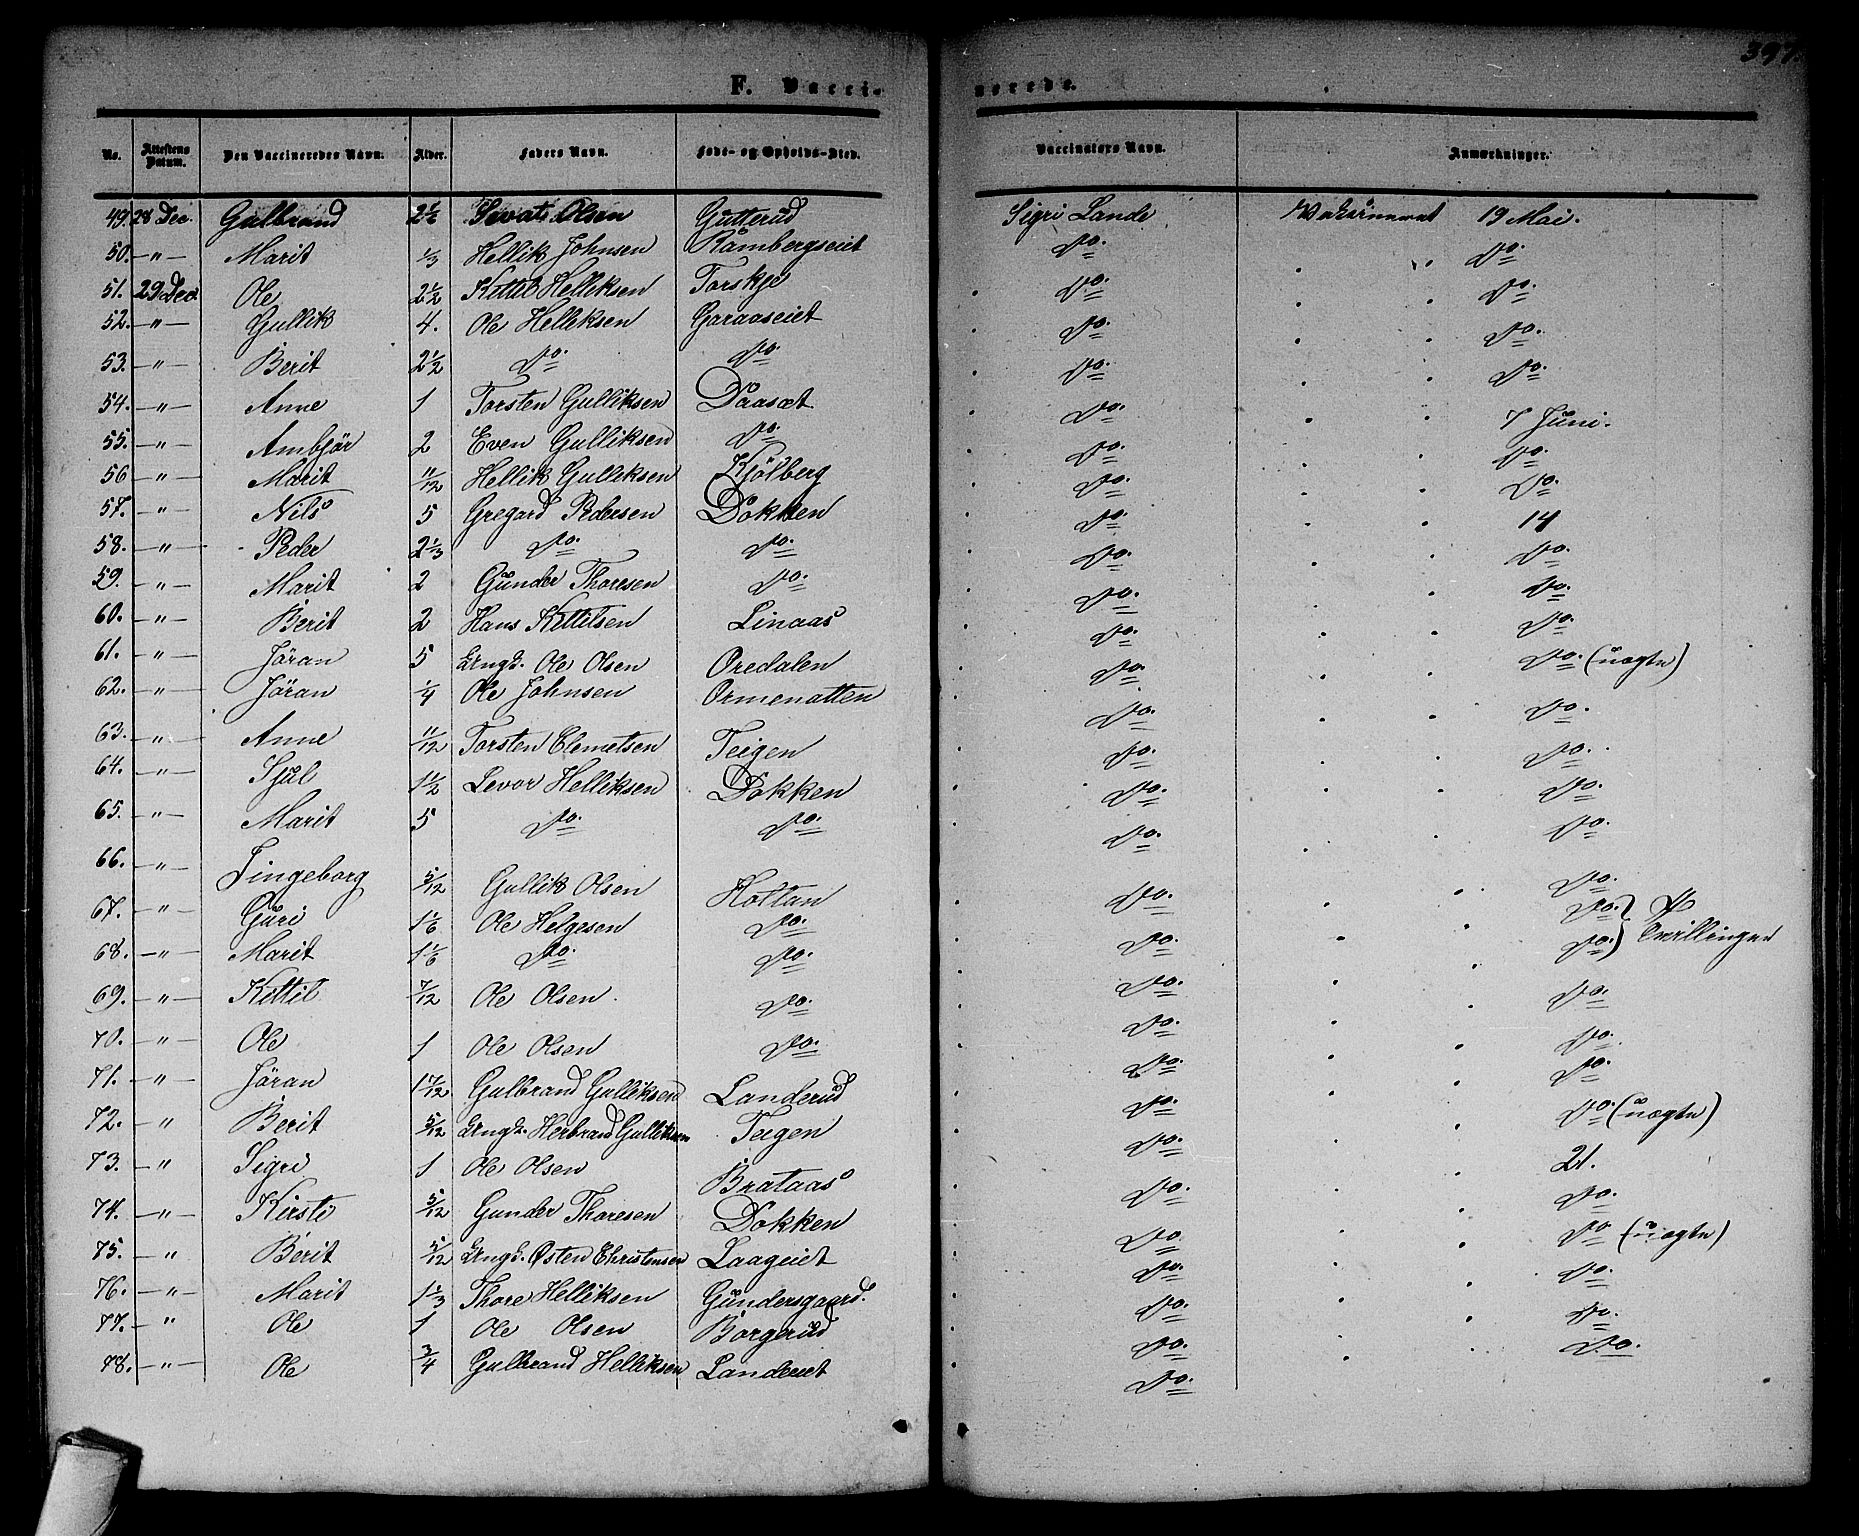 397.
F. Vaccinerede.
No. | Attestens Datum. | Den Vaccineredes Navn. | Alder. | Faders Navn. | Føde- og Opholds-Sted. | Vaccinators Navn. | Anmærkninger.
49. 28 Dec. Gulbrand 2½ Sevat Olsen Gutterud Sigri Lande 19 Mai.
50. —"— Marit ⅓ Hellik Johnsen Rambergseiet Do. Do.
51. 29 Dec. Ole 2½ Kittil Helliksen Torskje Do. Do.
52. —"— Gullik 4. Ole Helleksen Garaaseiet Do. Do.
53. —"— Berit 2½ Do. Do. Do. Do.
54. —"— Anne 1 Torsten Gulliksen Daaset Do. 7 Juni.
55. —"— Ambjør 2 Even Gulliksen Do. Do. Do.
56 —"— Marit 11/12 Hellik Gulliksen Kjølberg Do. Do.
57. —"— Nils 5 Gregard Pedersen Dokken Do. 14
58. —"— Peder 2⅓ Do. Do. Do. Do.
59. —"— Marit 2 Gunder Thoresen Do. Do. Do.
60. —"— Berit 2 Hans Kittilsen Linaas Do. Do.
61. —"— Jöran 5 Ungk. Ole Olsen Oredalen Do. Do. (uægte)
62. —"— Jöran ¼ Ole Johnsen Ormenatten Do. Do.
63. —"— Anne 11/12 Torsten Clemetsen Teigen Do. Do.
64. —"— Sjul 1½ Levor Helliksen Dokken Do. Do.
65. —"— Marit 5 Do. Do. Do. Do.
66. —"— Ingeborg 5/12 Gullik Olsen Hottan Do. Do.
67. —"— Guri 1⅙ Ole Helgesen Do. Do. Do. } Tvillinger
68. —"— Marit 1⅙ Do. Do. Do. Do.
69. —"— Kittil 7/12 Ole Olsen. Do. Do. Do.
70. —"— Ole 1 Ole Olsen Do. Do. Do.
71. —"— Jöran 1 7/12 Gulbrand Gulliksen Landerud Do. Do.
72. —"— Berit 5/12 Ungk. Herbrand Gulliksen Teigen Do. Do. (uægte)
73. —"— Sigri 1 Ole Olsen Brataas Do. 21.
74. —"— Kirsti 5/12 Gunder Thoresen Dokken Do. Do.
75. —"— Berit 5/12 Ungk. Østen Christensen Laageiet Do. Do. (uægte)
76. —"— Marit 1⅓ Thore Helliksen Gundersgaard. Do. Do.
77. —"— Ole 1 Ole Olsen Borgerud Do. Do.
78. —"— Ole ¾ Gulbrand Helliksen Landeiet Do. Do.
Do.